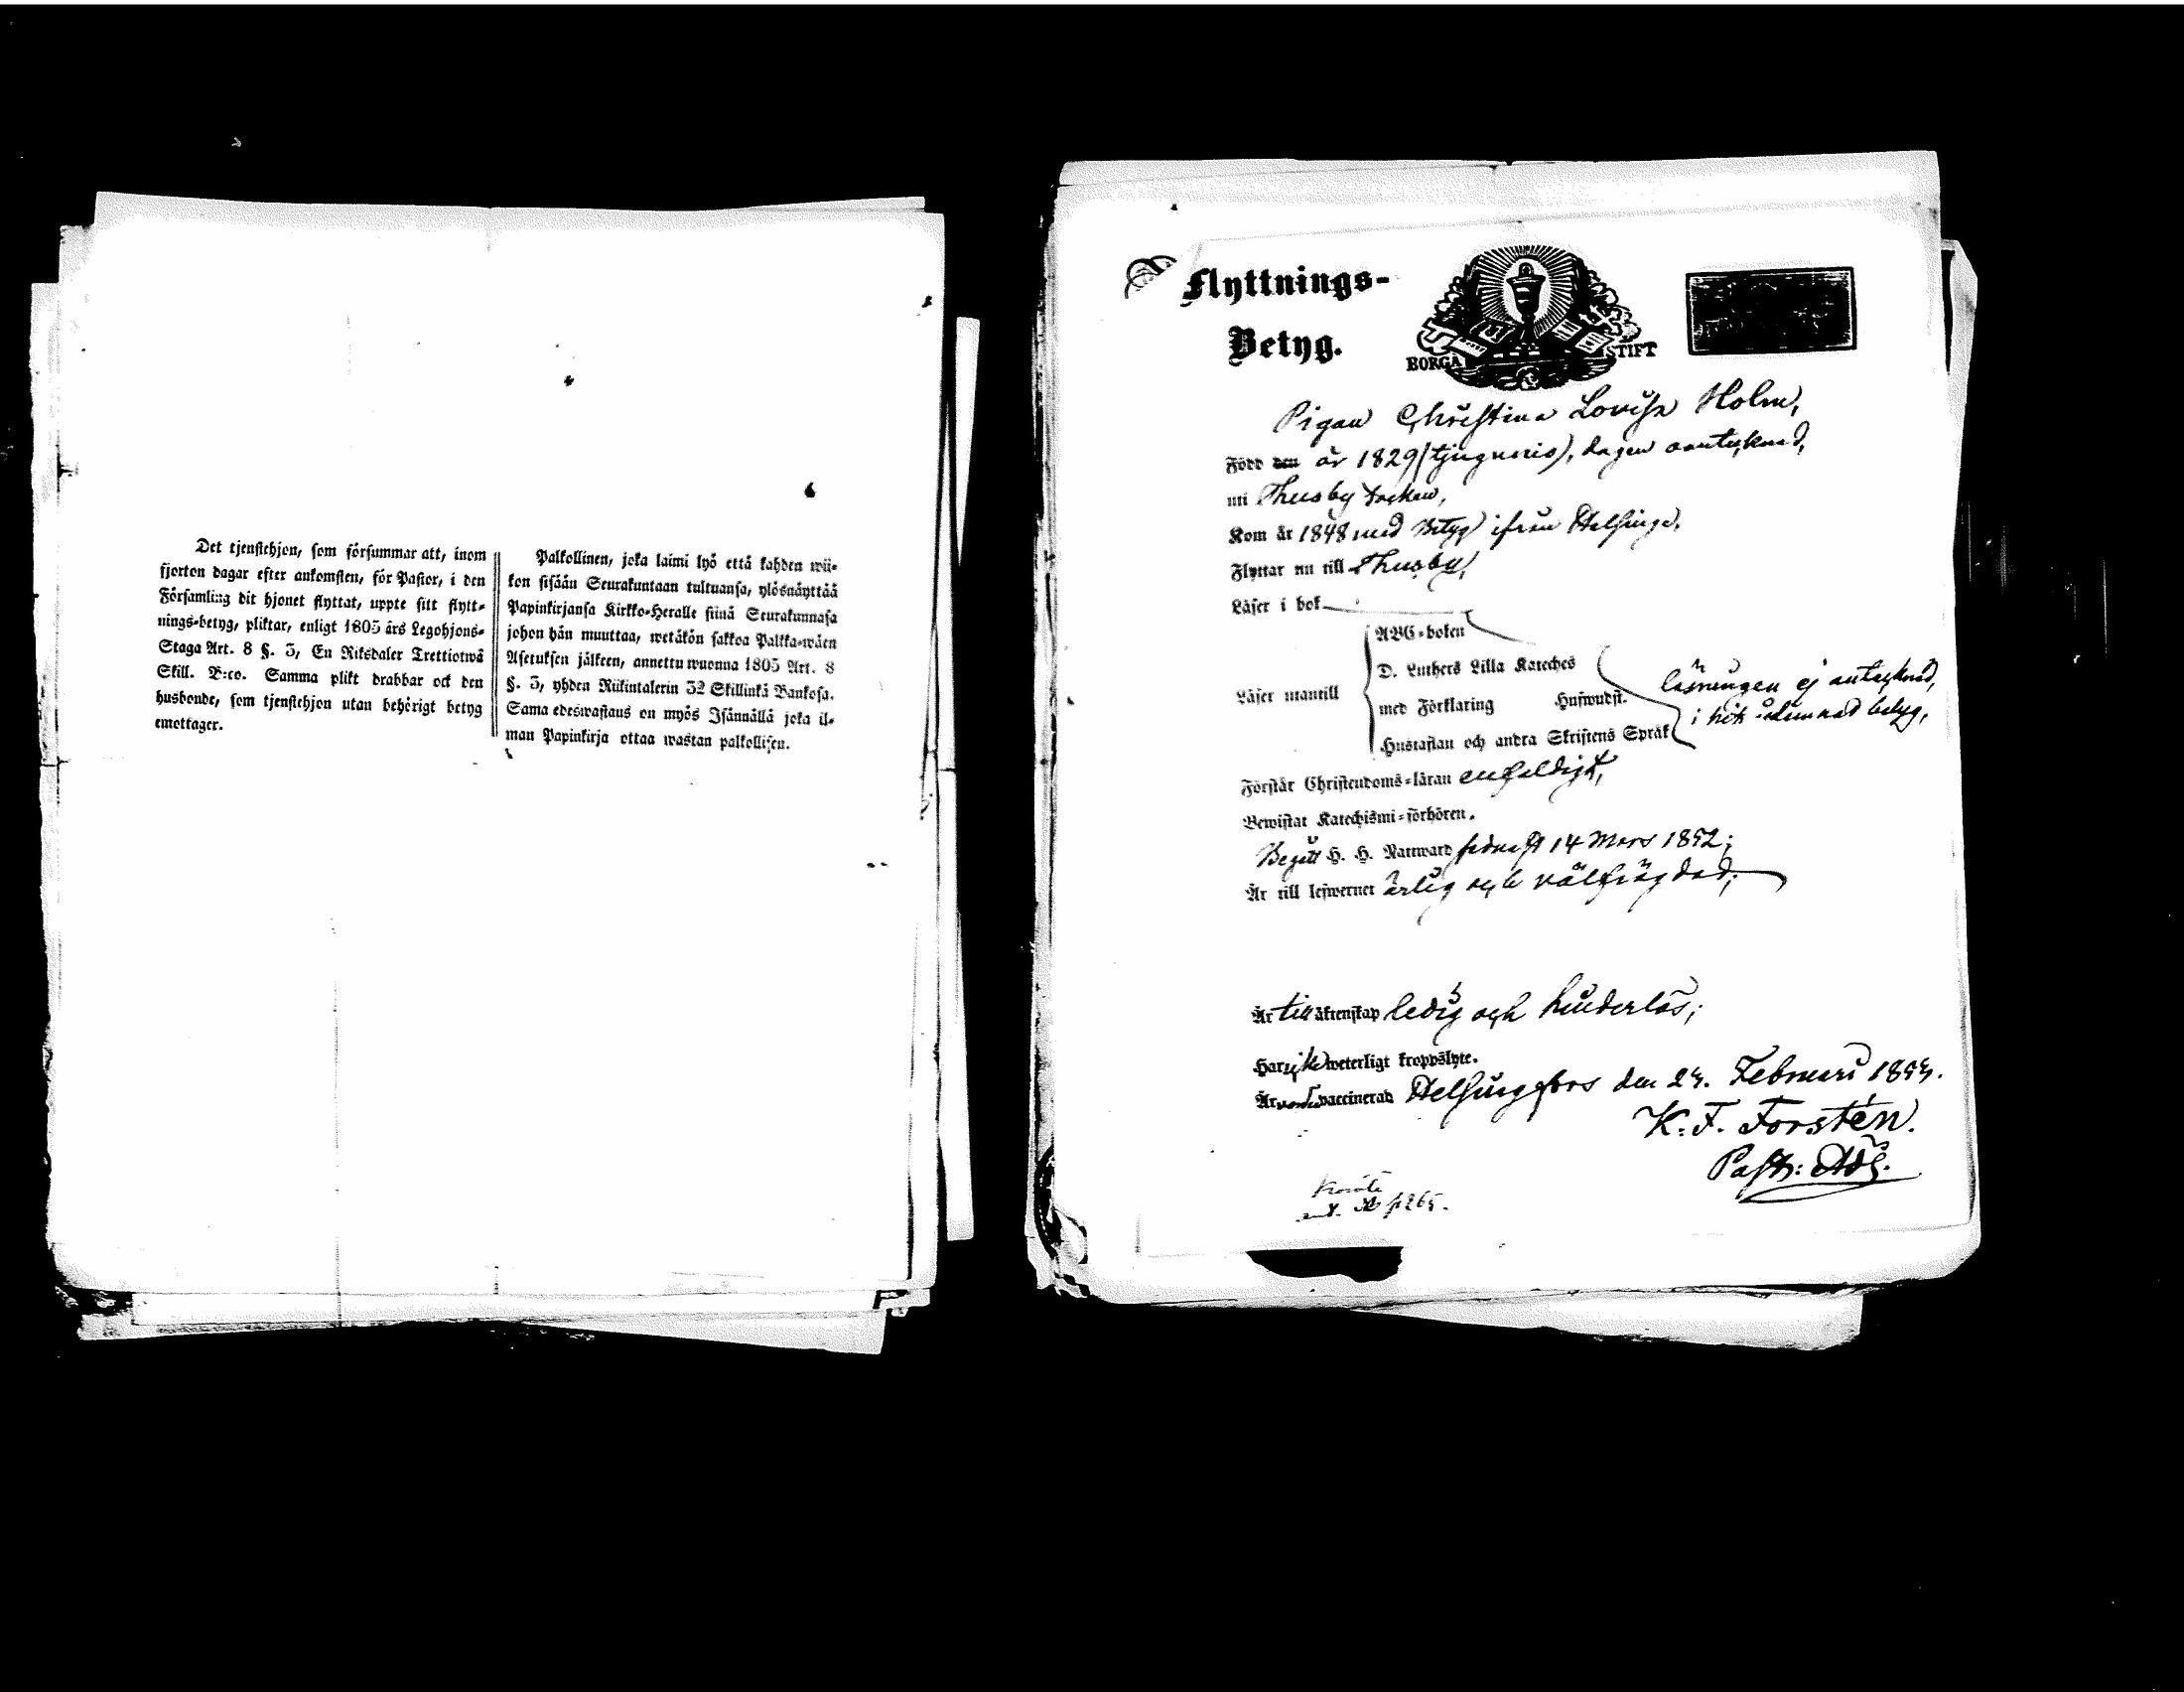 Det tjenstehjon, som försummar att, inom
fjorton dagar efter ankomsten, för Pastor, i den
Församling dit hjonet flyttat, uppte sitt flytt-
nings-betyg, pliktar, enligt 1805 års Legohjons-
Staga Art. 8 §. 3, En Riksdaler Trettiotwå
Skill. B:co. Samma plikt drabbar ock den
husbonde, som tjenstehjon utan behörigt betyg
emottager.
Palkollinen, joka laimi lyö että kahden wii-
kon sisään Seurakuntaan tultuansa, ylösnäyttää
Papinkirjansa Kirkko-Heralle siinä Seurakunnasa
johon hän muuttaa, wetäkön sakkoa Palkka-wäen
Asetuksen jälkeen, annettu wuonna 1805 Art. 8
§. 3, yhden Riikintalerin 32 Skillinkä Bankosa.
Sama edeswastaus on myös Isännällä joka il-
man Papinkirja ottaa wastan palkollisen.
Flyttnings-
Betyg.
BORGÅ STIFT
Pigan Christina Lovisa Holm,
Född den år 1829 (tjugunio), dagen oantecknad,
uti Thusby Socken,
Kom år 1848 med Betyg ifrån Helsinge.
Flyttar nu till Thusby,
Läser i bok
ABC-boken
D. Luthers Lilla Kateches
Läser utantill
med Förklaring Huswudst.
Hustaflan och andra Skriftens Språk
läsningen ej antecknad,
i hit lemnad betyg,
Förstår Christendoms-läran enfaldigt,
Bewistat Katechismi-förhören.
Begått H. H. Nattward sednast 14 Mars 1852;
Är till lefwernet ärlig och välfrägdad;
Är till äktenskap ledig och hinderlös;
Har icke weterligt kroppslyte.
Är vaccinerad Helsingfors den Februari
K. F. Forstén.
Past: Adj.
p 265.